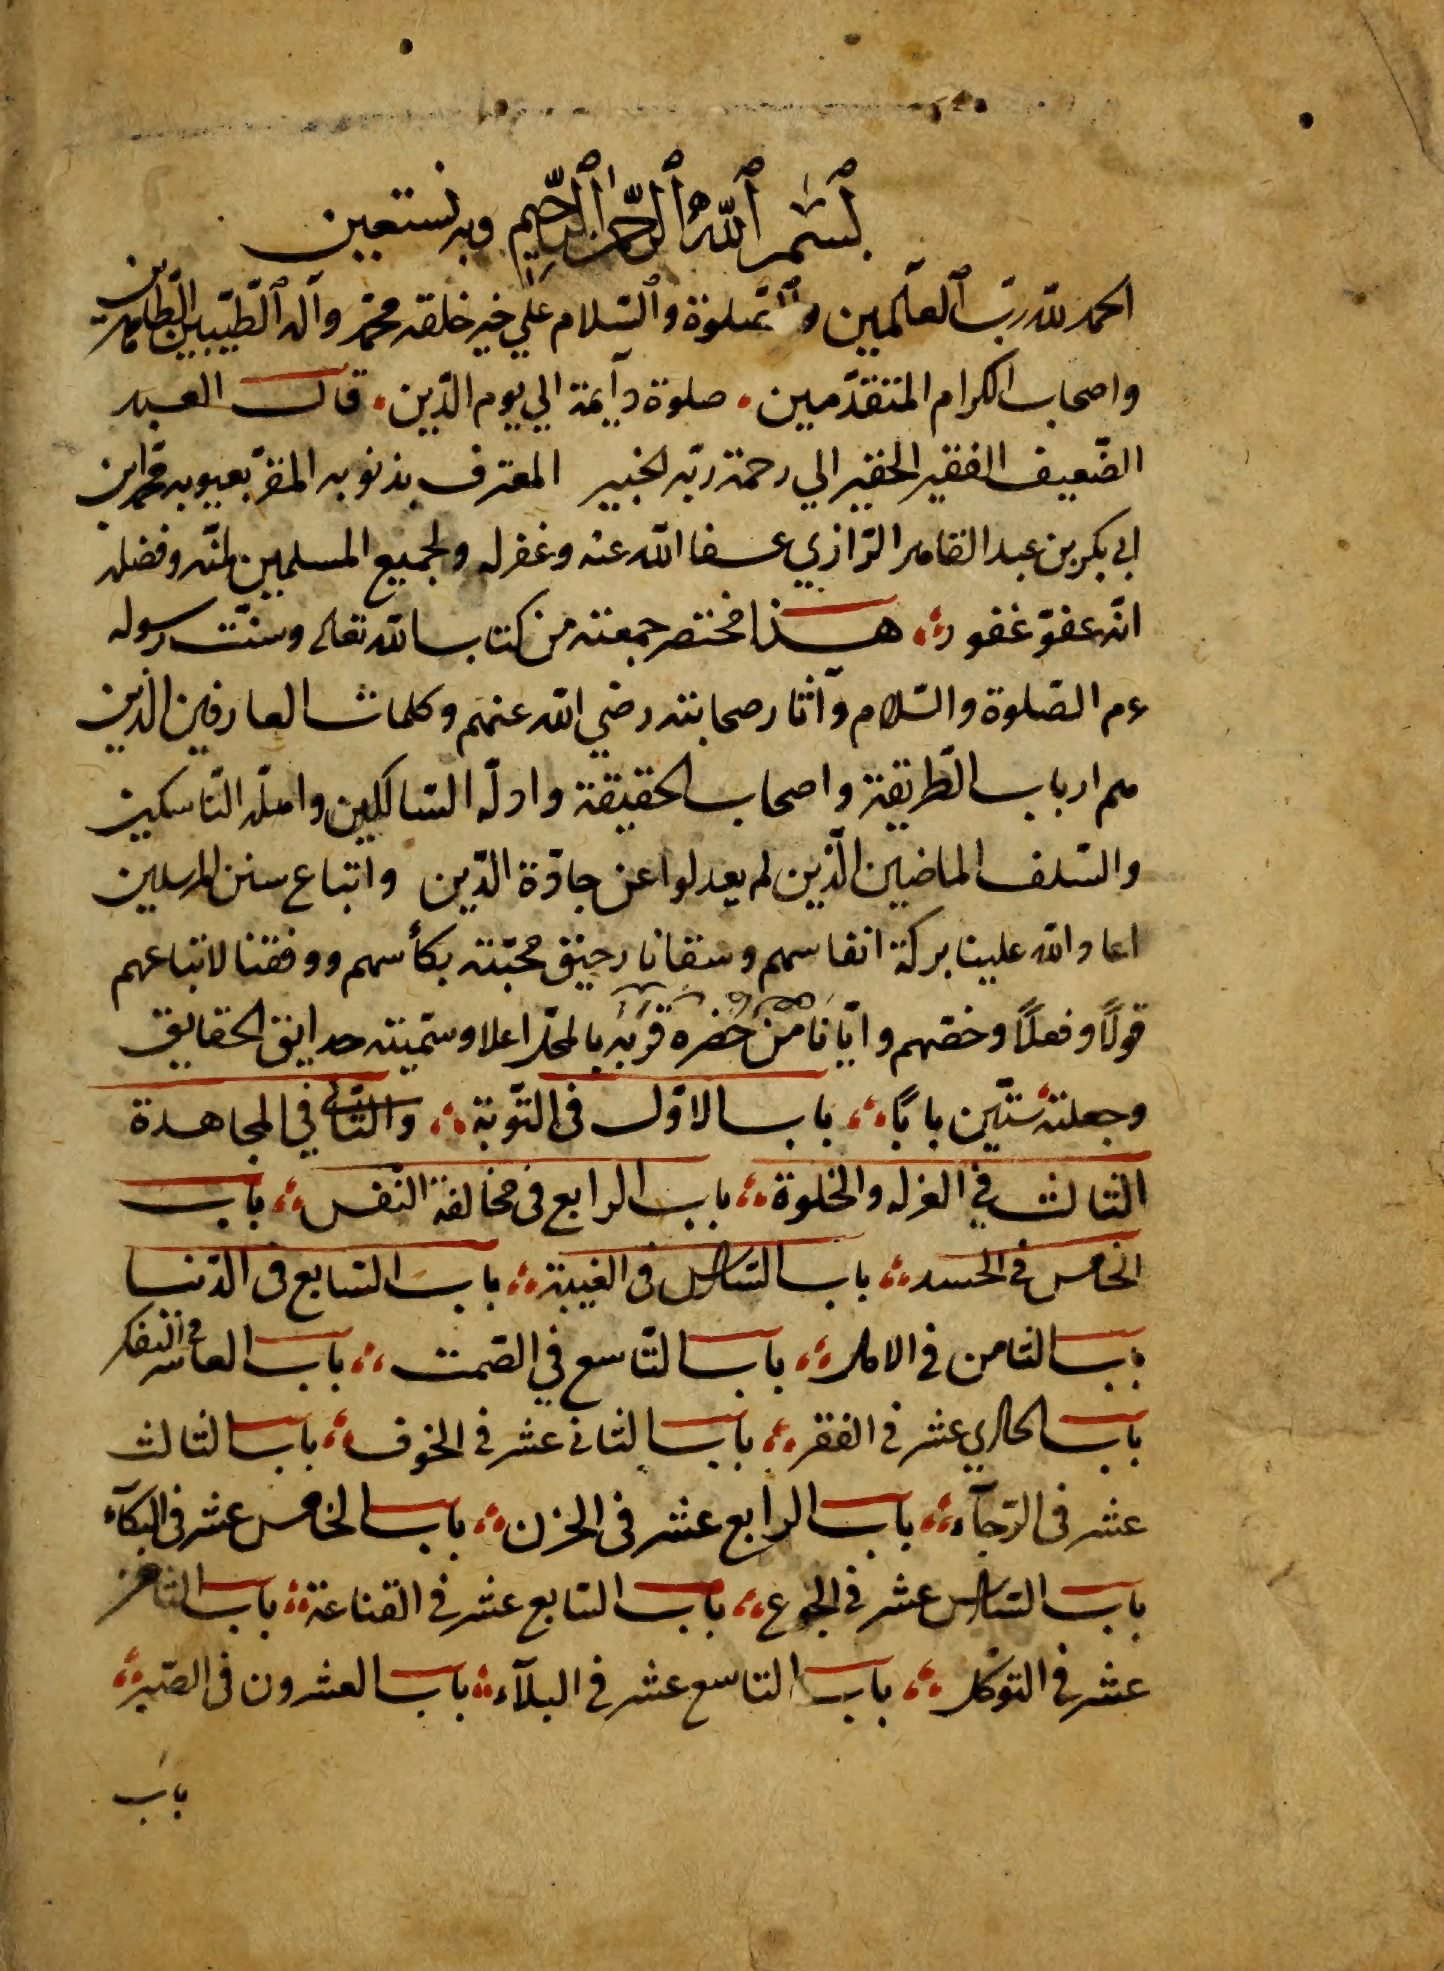 بسم الله الرحمن الرحيم وبه نستعين
الحمد لله رب العالمين والصلوة والسلام علي خير خلقه محمد وآله الطيبين الطاهرين
واصحاب الكرام المتقدمين . صلوة دآيمة الي يوم الدين . قال العبد
الضعيف الفقير الحقير الي رحمة ربه الخبير المعترف بذنوبه المقر بعيوبه محمد ابن
ابي بكر بن عبد القاهر الرازي عفا الله عنه وغفر له ولجميع المسلمين بمنه وفضله
انه عفو غفور هذا مختصر جمعته من كتاب الله تعالى وسنت رسوله
عم الصلوة والسلام وآثار صحابته رضي الله عنهم وكلمات العارفين الذين
هم ارباب الطريقة واصحاب الحقيقة وادلة السالكين واهله الناسكين
والسلف الماضين الذين لم يعدلوا عن جادة الدين واتباع سنن المرسلين
اعاد الله علينا بركة انفاسهم وسقانا رحيق محبته بكأسهم ووفقنا لاتباعهم
قولاً وفعلاً وخصهم وايانا من حضره قربه بالمحل اعلا وسميته حدايق الحقايق
وجعلته ستين باباً باب الاول في التوبة والثاني في المجاهدة
الثالث في العزله والخلوة باب الرابع في مخالفة النفس باب
الخامس في الحسد باب السادس في الغيبة باب السابع في الدنيا
باب الثامن في الامل باب التاسع في الصمت باب العاشر في التفكر
باب الحادي عشر في الفقر باب الثاني عشر في الخوف باب الثالث
عشر في الرجآء باب الرابع عشر في الحزن باب الخامس عشر في البكآء
باب السادس عشر في الجوع باب السابع عشر في القناعة باب الثامن
عشر في التوكل باب التاسع عشر في البلآء باب العشرون في الصبر
باب